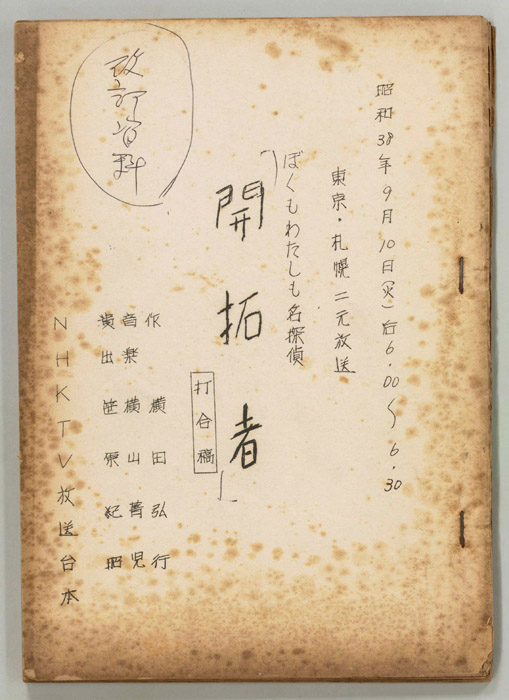 昭和38年9月10日(火)后6.00〜6.30
東京・札幌 二元放送
ぼくもわたしも名探偵
「開拓者」
打合稿
作 横田弘行
音楽 横山菁児
演出 笹原紀昭
NHKTV放送台本